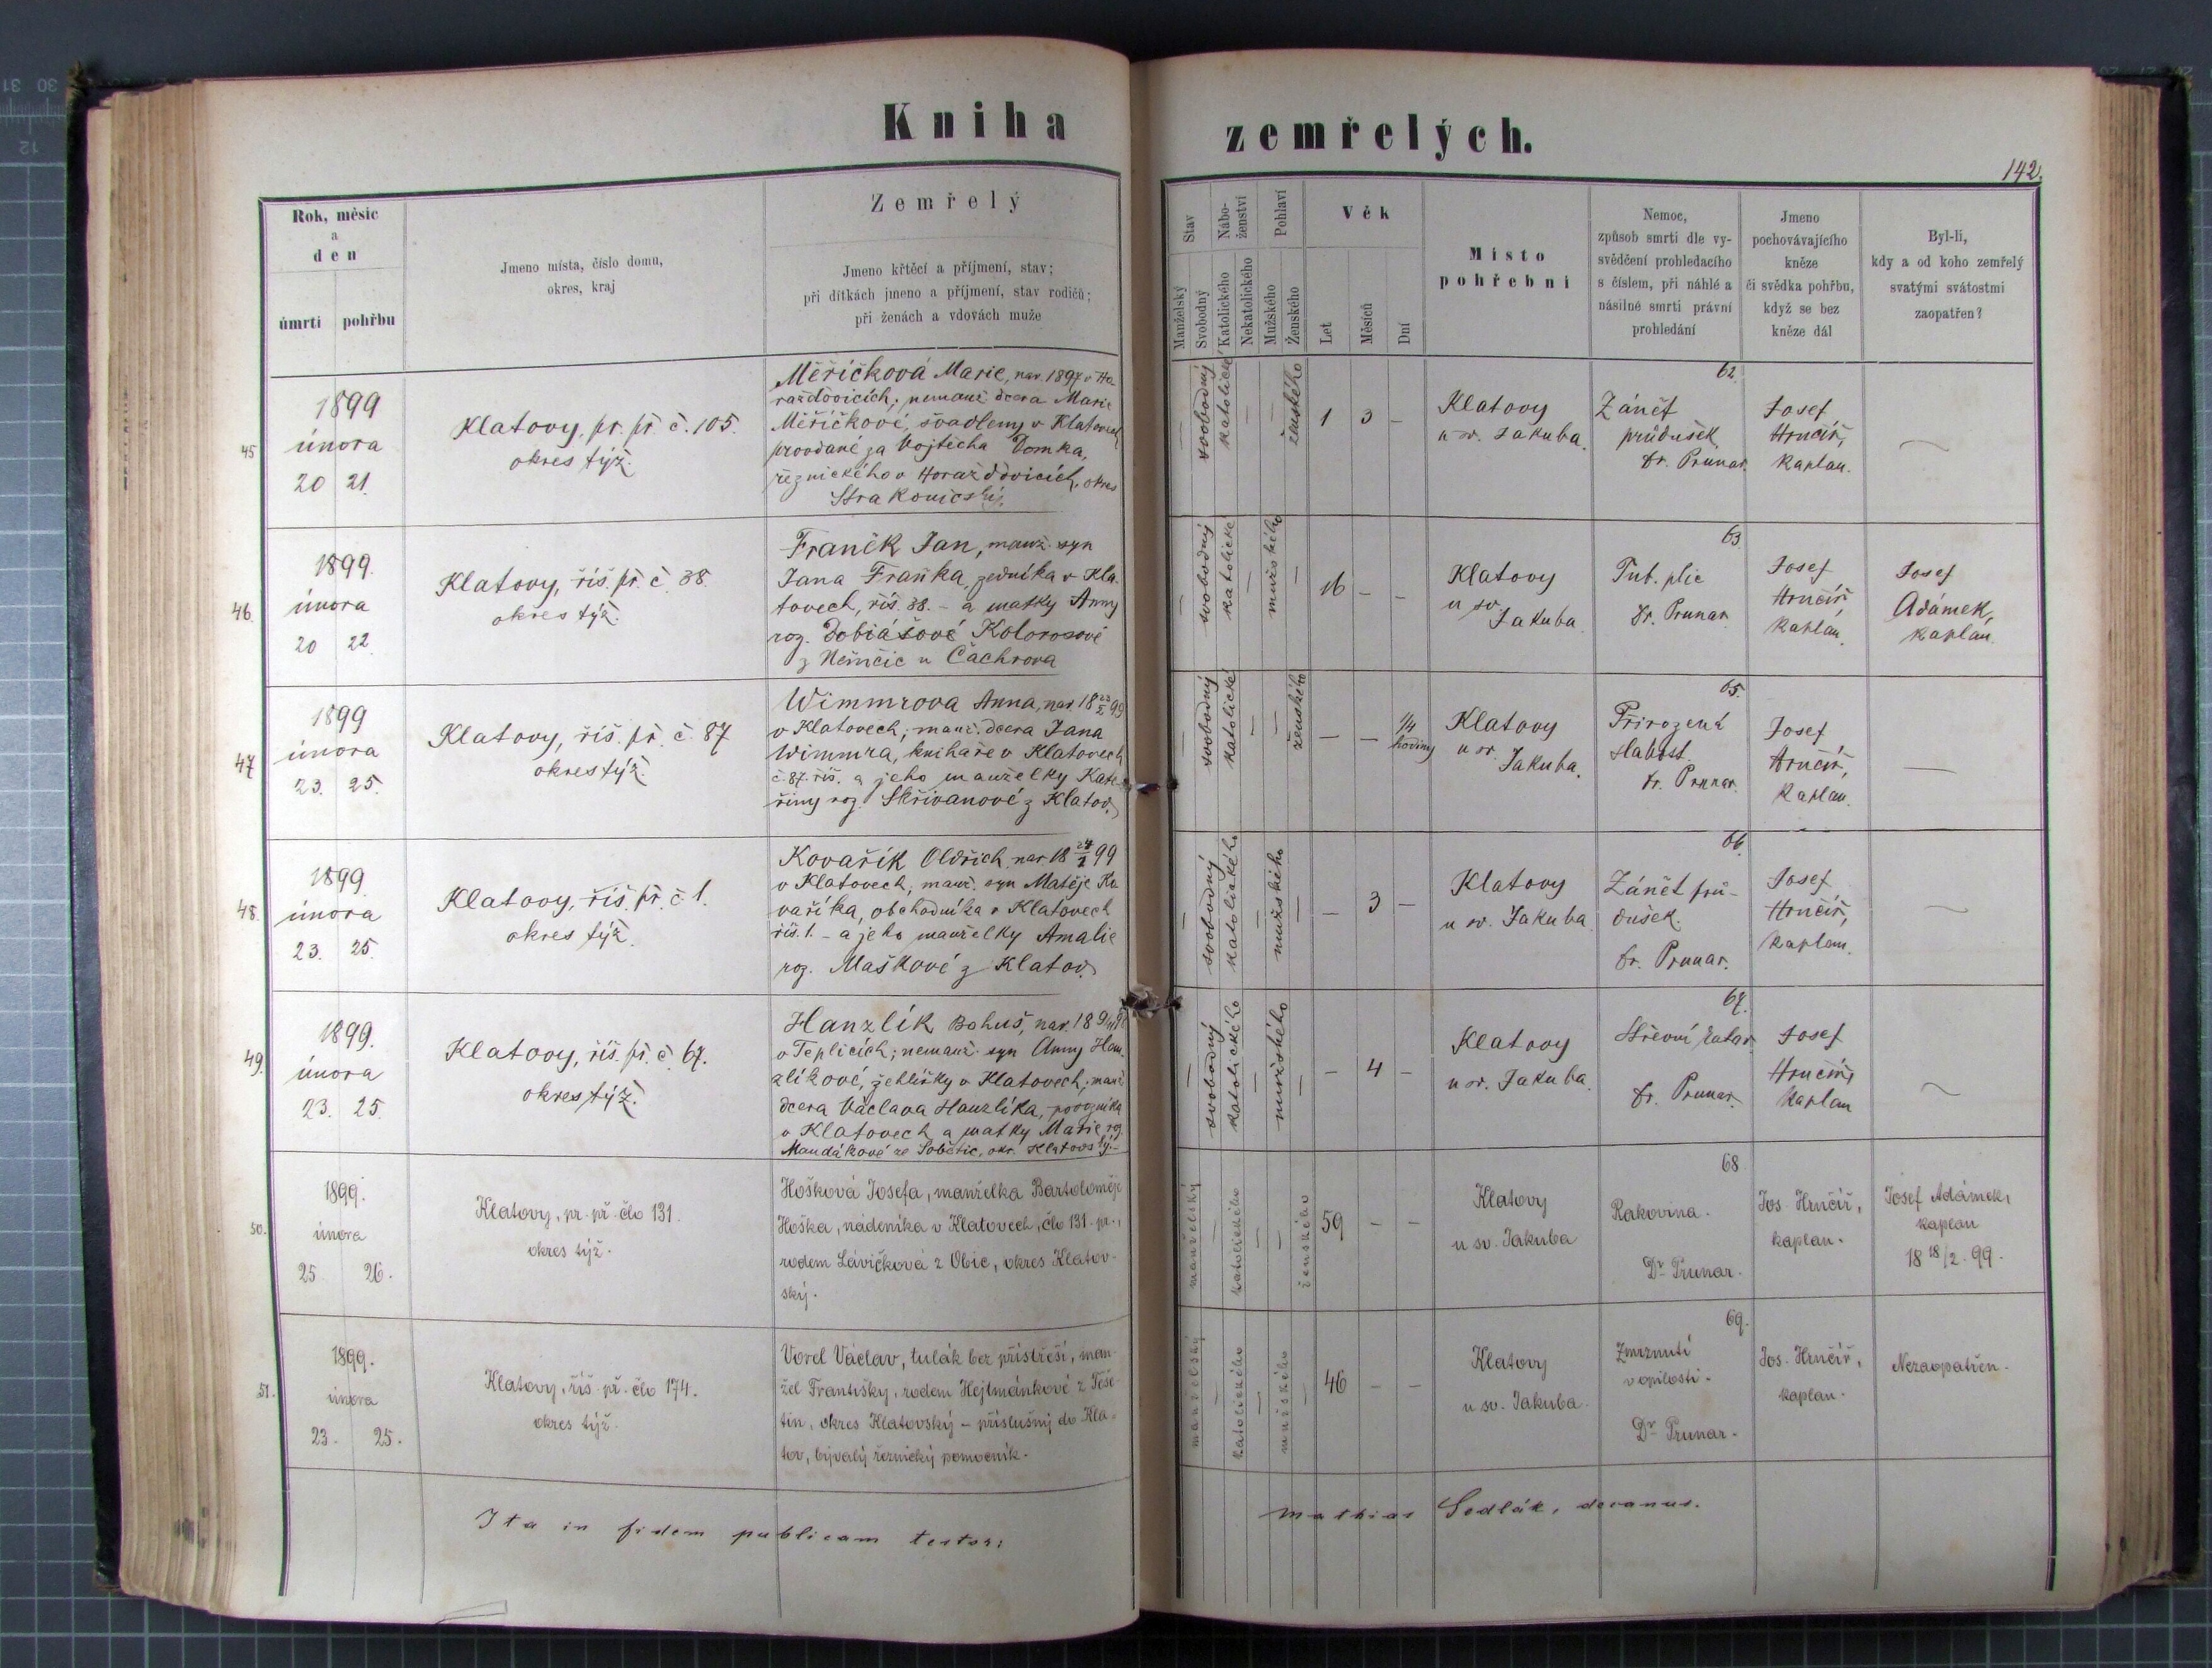 Kniha zemřelých.
142.
Rok, měsíc
a
den
úmrtí pohřbu
Jmeno místa, číslo domu,
okres, kraj
Zemřelý
Jmeno křtěcí a příjmení, stav;
při dítkách jmeno a příjmení, stav rodičů;
při ženách a vdovách muže
Stav
Manželský
Svobodný
Nábo-
ženství
Katolického
Nekatolického
Pohlaví
Mužského
Ženského
Věk
Let
Měsíců
Dní
Místo
pohřební
Nemoc,
způsob smrti dle vy-
svědčení prohledacího
s číslem, při náhlé a
násilné smrti právní
prohledání
Jmeno
pochovávajícího
kněze
či svědka pohřbu,
když se bez
kněze dál
Byl-li,
kdy a od koho zemřelý
svatými svátostmi
zaopatřen?
45
1899
února
20 21.
Klatovy, pr. př. č. 105.
okres týž.
Měřičková Marie, nar. 1897 v Ho-
raždovicích; nemanž dcera Marie
Měřičkové, švadleny v Klatovech
provdané za Vojtěcha Domka,
řeznického v Horažďovicích, okres
Strakonický.
svobodný
katolické
ženského
1 3 –
Klatovy
u sv. Jakuba.
62.
Zánět
průdušek
Dr. Prunar.
Josef
Hrnčíř,
kaplan.
46.
1899.
února
20 22.
Klatovy, říš. př. č. 38.
okres týž.
Franěk Jan, manž. syn
Jana Fraňka, zedníka v Kla-
tovech, říš. 38. – a matky Anny
roz. Dobiášové Kolorosové
z Němčic u Čachrova
svobodný
katolické
mužského
16 – –
Klatovy
u sv.
Jakuba
63.
Tub. plic
Dr. Prunar
Josef
Hrnčíř,
kaplan.
Josef
Adámek,
kaplan.
47
1899
února
23. 25.
Klatovy, říš. př. č. 87
okres týž.
Wimmrova Anna, nar. 18 23/2 99
v Klatovech; manž. dcera Jana
Wimmra, knihaře v Klatovech
č. 87. říš. a jeho manželky Kate-
řiny roz. Skřivanové z Klatov.
svobodný
katolické
ženského
– – 1/4
hodiny
Klatovy
u sv.
Jakuba.
65.
Přirozená
slabost.
Dr. Prunar.
Josef
Hrnčíř,
kaplan.
48.
1899
února
23. 25.
Klatovy, říš. př. č. 1.
okres týž.
Kovařík Oldřich nar 18 99
v Klatovech, manž. syn Matěje Ko-
vaříka, obchodníka v Klatovech
říš. 1. – a jeho manželky Amalie
roz. Maškové z Klatov.
svobodný
katolického
mužského
– 3 –
Klatovy
u sv. Jakuba
66.
Zánět prů-
dušek.
Dr. Prunar.
Josef
Hrnčíř,
kaplan.
49.
1899.
února
23. 25.
Klatovy, říš. př. č. 67.
okres týž.
Hanzlík Bohuš, nar.
v Teplicích; nemanž. syn Anny Han-
zlíkové, žehlířky v Klatovech; manž
dcera Václava Hanzlíka, povozníka
v Klatovech a matky Marie roz.
Maudákové ze Sobětic, okr. Klatovský.–
svobodný
katolického
mužského
– 4 –
Klatovy
u sv. Jakuba.
67.
Střevní katar
Dr. Prunar.
Josef
Hrnčíř,
kaplan
50.
1899.
února
25 26.
Klatovy, pr. př. člo 131.
okres týž.
Hošková Josefa, manželka Bartoloměje
Hoška, nádeníka v Klatovech, člo 131 pr.,
rodem Lávičková z Obic, okres Klatov-
ský.
manželský
katolického
ženského
59 – –
Klatovy
u sv. Jakuba
68
Rakovina.
Dr Prunar.
Jos. Hrnčíř,
kaplan.
Josef Adámek,
kaplan
18 18/2. 99.
51.
1899.
února
23. 25.
Klatovy, říš. př. člo 174.
okres týž.
Vorel Václav, tulák bez přístřeší, man-
žel Františky, rodem Hejtmánkové z Teše-
tin, okres Klatovský – příslušný do Kla-
tov, bývalý řeznický pomocník.
manželský
katolického
mužského
46 – –
Klatovy
u sv. Jakuba.
69.
Zmrznutí
v opilosti.
Dr Prunar.
Jos. Hrnčíř,
kaplan.
Nezaopatřen.
Ita in fidem publicam testor: Mathias Sedlák, decanus.